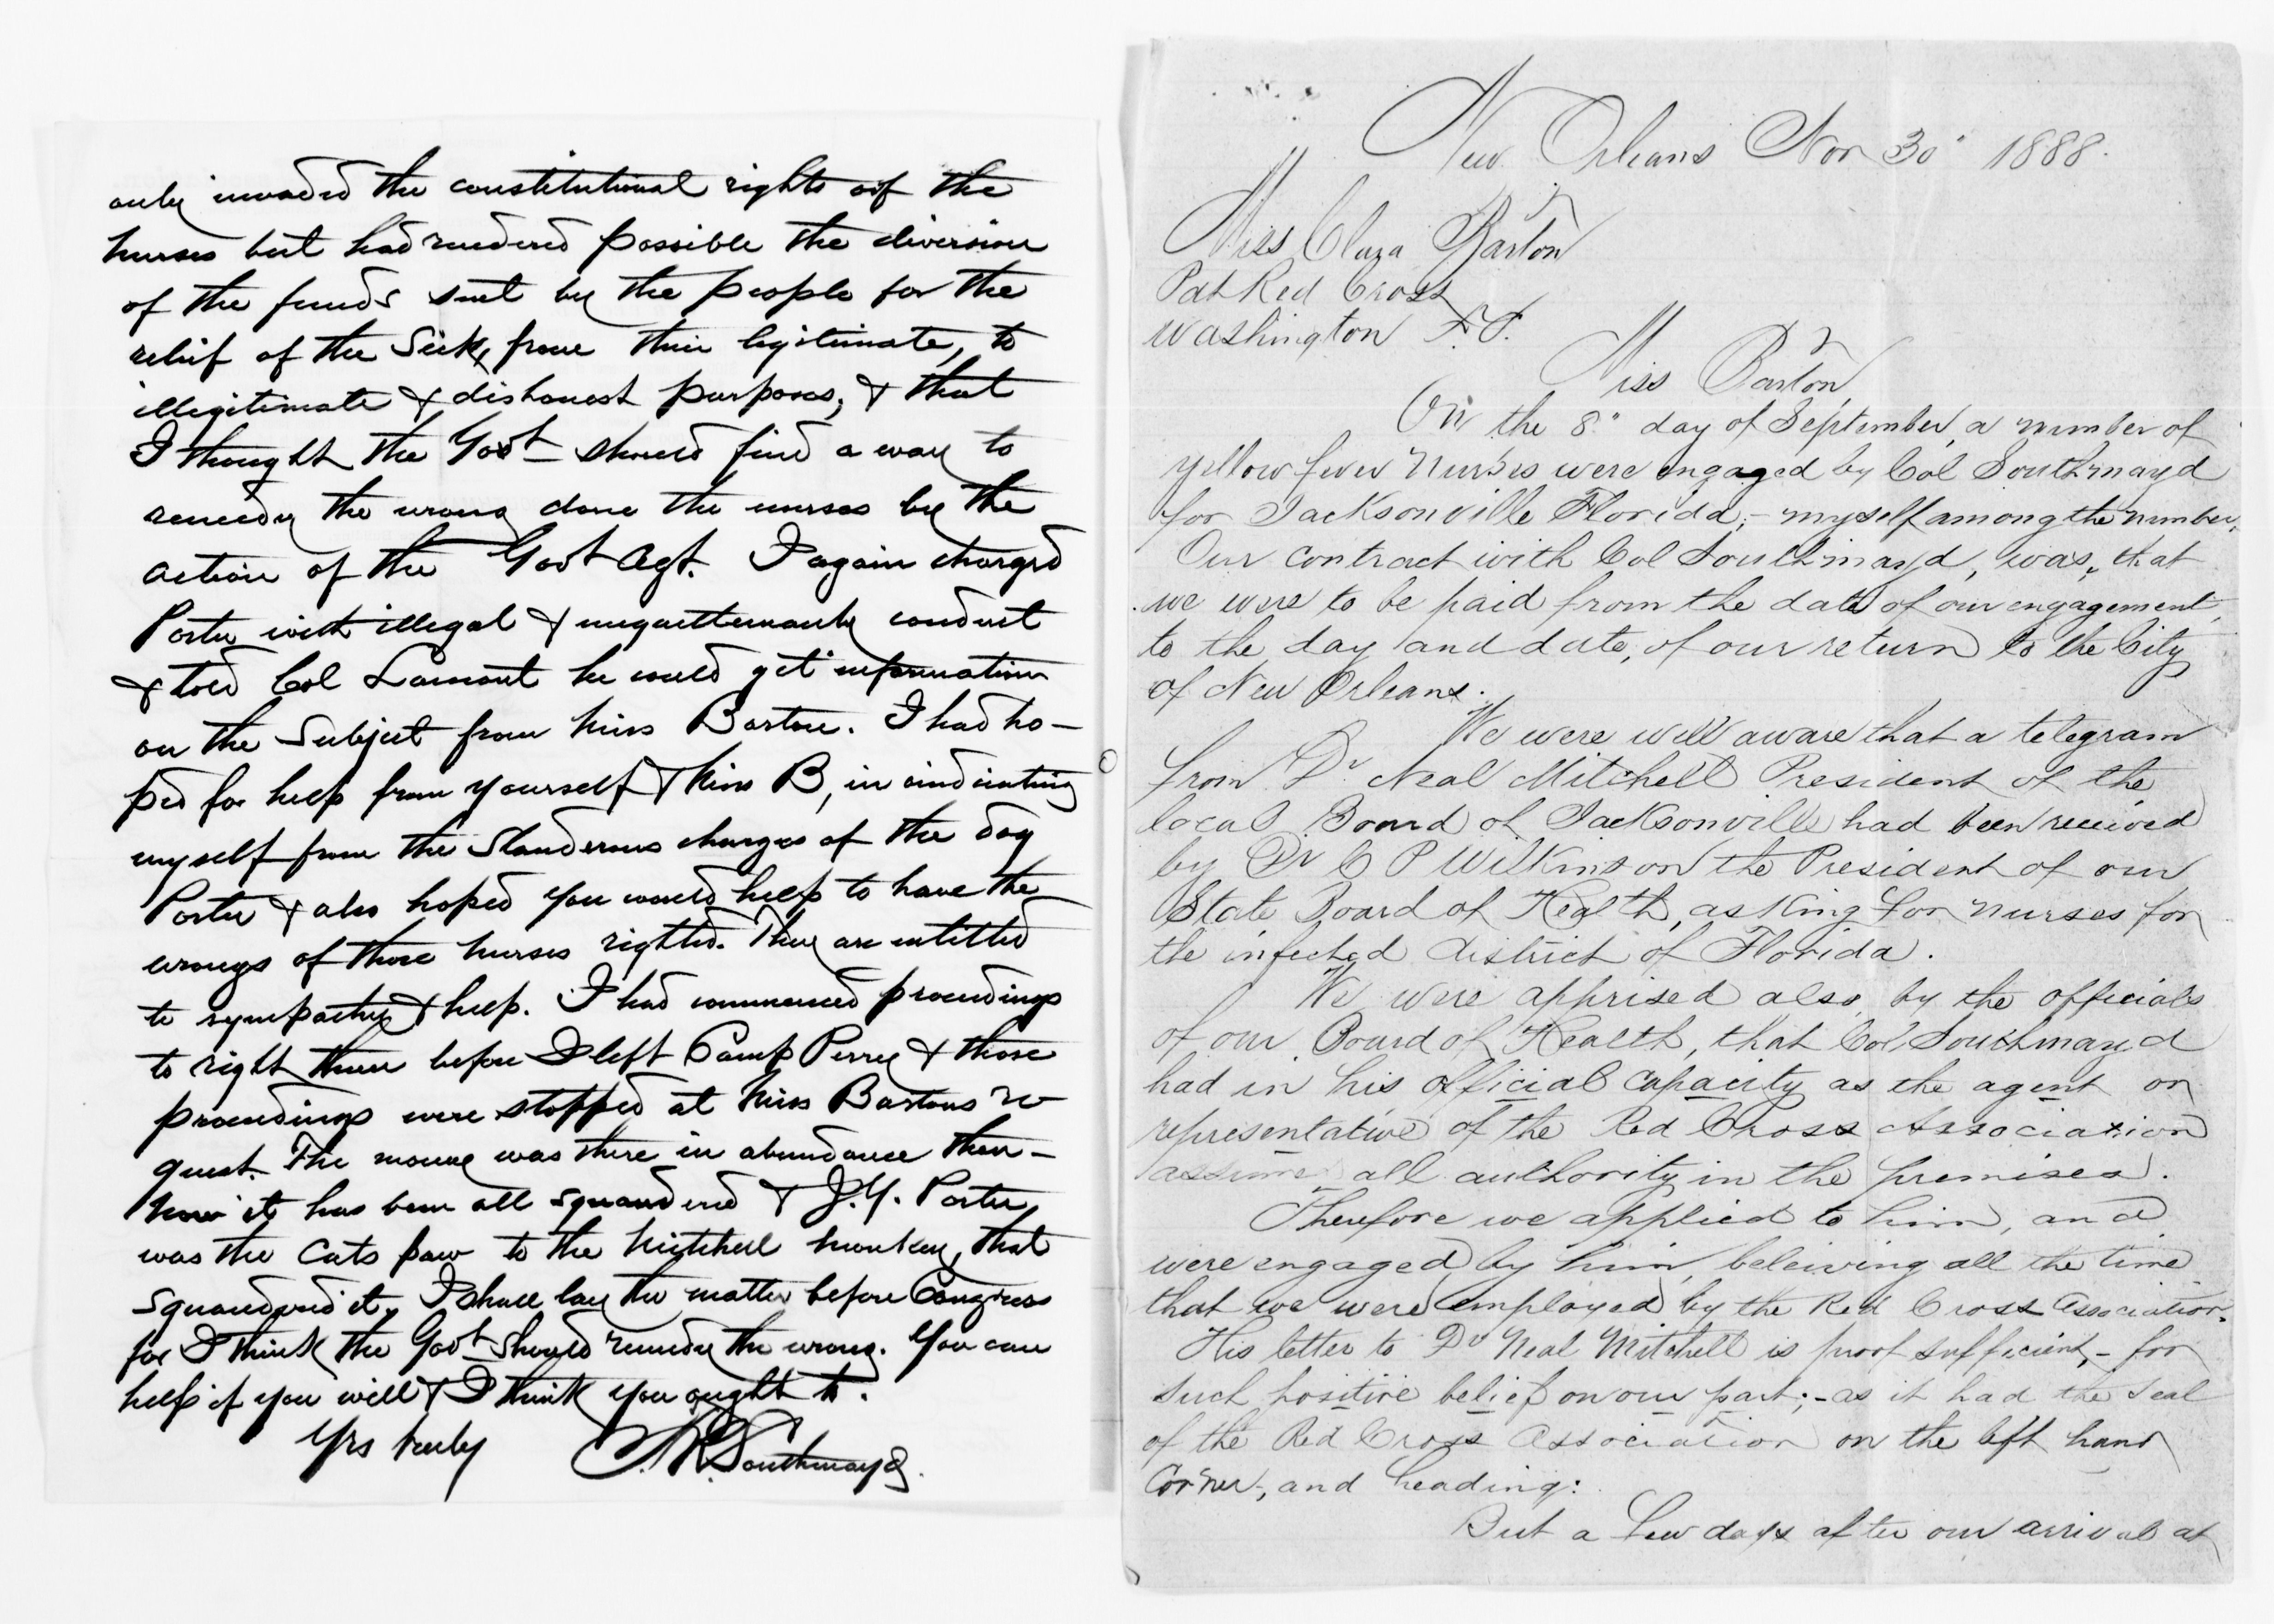 only invaded the constitutional rights of the
nurses but had rendered possible the diversion
of the funds sent by the people for the
relief of the Sick, from their legitimate, to
illegitimate & dishonest purposes, & that
I thought the Govt should find a way to
remedy the wrong done the nurses by the
action of the Govt Agt. I again charged
Porter with illegal & ungentlemanly conduct
& told Col Lamont he could get information
on the Subject from Miss Barton. I had ho-
ped for help from yourself & Miss B, in vindicating
myself from the Slanderous charges of the dog
Porter & also hoped you would help to have the
wrongs of those nurses righted. They are entitled
to sympathy & help. I had commenced proceedings
to right them before I left Camp Perry & those
proceedings were stopped at Miss Bartons re-
quest. The money was there in abundance then -
Now it has been all squandered & J.Y. Porter
was the Cats paw to the Mitchell monkey, that
squandered it. I shall lay the matter before Congress
for I think the Govt should remedy the wrong. You can
help if you will & I think you ought to.
Yrs truly
F. R. Southmayd.
New Orleans Nov 30" 1888.
Miss Clara Barton
Pat Red Cross
Washington
Miss Barton,
On the 8" day of September, a number of
yellow fever Nurses were engaged by Col Southmayd
for Jacksonville Florida; - myself among the number.
Our contract with Col Southmayd, was, that
we were to be paid from the date of our engagement,
to the day and date, of our return to the City
of New Orleans.
We were well aware that a telegram
from Dr Neal Mitchell President of the
local Board of Jacksonville had been received
by Dr C P Wilkinson the President of our
State Board of Health, asking for nurses for
the infected district of Florida.
We were apprised also, by the officials
of our Board of Health, that Col Southmayd
had in his official capacity as the agent or
representative of the Red Cross Association
assume all authority in the premises.
Therefore we applied to him, and
were engaged by him, beleiving all the time
that we were employed by the Red Cross Association.
His letter to Dr Neal Mitchell is proof sufficient, - for
such positive belief on our part; - as it had the Seal
of the Red Cross Association on the left hand
Corner, and heading:
But a few days after our arrival at